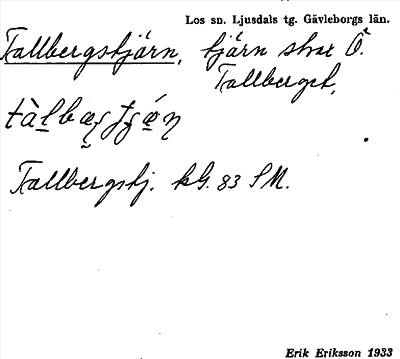 Los sn. Ljusdals tg. Gävleborgs län.
Tallbergstjärn, tjärn strax Ö.
Tallberget,
Tallbergstj. kG. 83 SM.
Erik Eriksson 1933